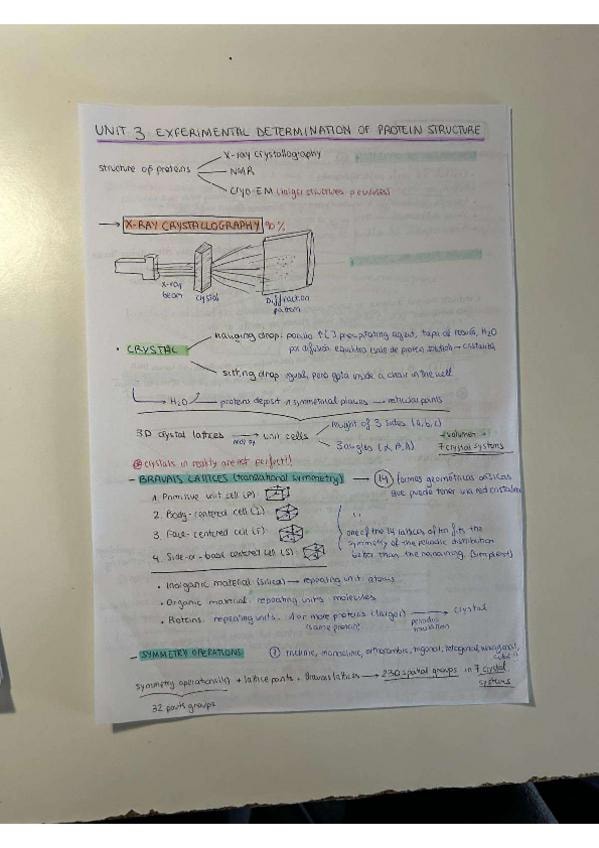 UNIT 3. EXPERIMENTAL DETERMINATION OF PROTEIN STRUCTURE
structure of proteins
X-ray crystallography
NMR
Cryo-EM
→ X-RAY CRYSTALLOGRAPHY 90%
X-ray beam
crystal
Diffraction pattern
• CRYSTAL
hanging drop: ↑[ ] precipitating agent, H2O
por difusión
sitting drop: igual, pero gota inside a chair in the well
H2O protein deposit in symmetrical planes → reticular points
3D crystal lattices → unit cells
lenght of 3 sides (a, b, c)
3 angles
volumen
7 crystal systems
crystals in reality are not perfect!!
- BRAVAIS LATTICES (translational symmetry) → 14 formas geométricas
que puede tener una red cristalina
1. Primitive unit cell (P)
2. Body-centered cell (I)
3. Face-centered cell (F)
4. Side-or-base centered cell (S)
one of the 14 lattices fits the
symmetry of the periodic distribution
better than the remaining. (simplest)
• Inorganic material (silica) → repeating unit: atoms
• Organic material: repeating units: molecules
• Proteins: repeating units: 1 or more proteins (larger) → crystal
(same protein)
periodic translation
- SYMMETRY OPERATIONS
⑦ triclinic, monoclinic, orthorombic, trigonal, tetragonal, hexagonal, cubic
symmetry operations + lattice points + Bravais lattices → 230 spatial groups in 7 crystal systems
32 points groups